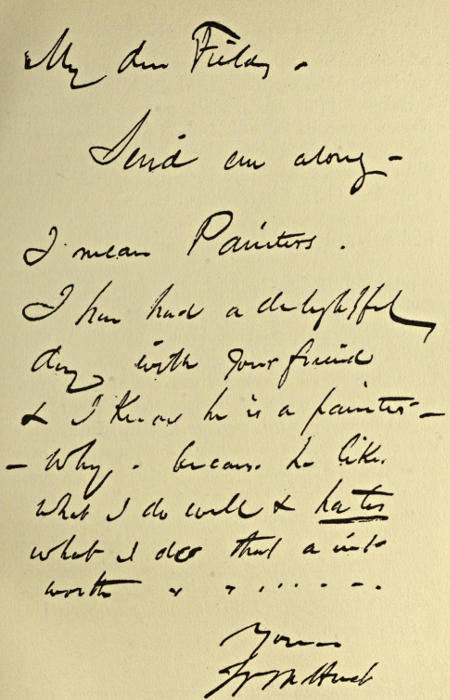 My dear Fields,
Send em along –
I mean Painters.
I have had a delightful
day with your friend
& I know he is a painter –
– Why – because he likes
what I do well & hates
what I do that aint
worth . . . . . . . .
Yours
W M Hunt